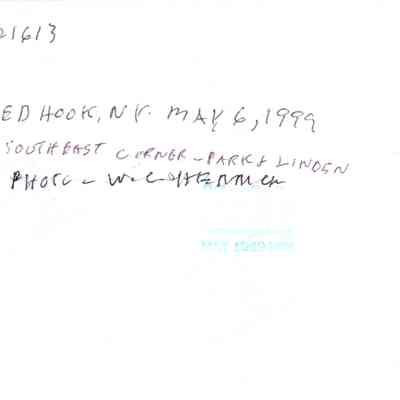 21613
ED HOOK, N.Y. MAY 6, 1999
SOUTHEAST CORNER - PARK & LINDEN
PHOTO - W.C.